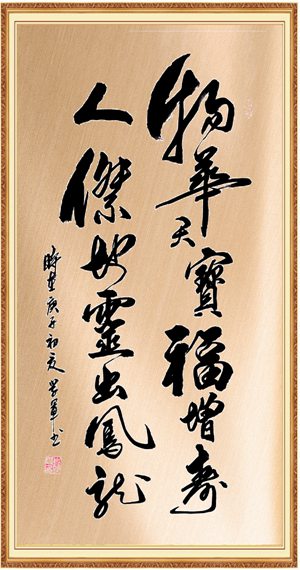 物華天寶福增壽
人傑地靈出鳳龍
時在庚子初夏
書